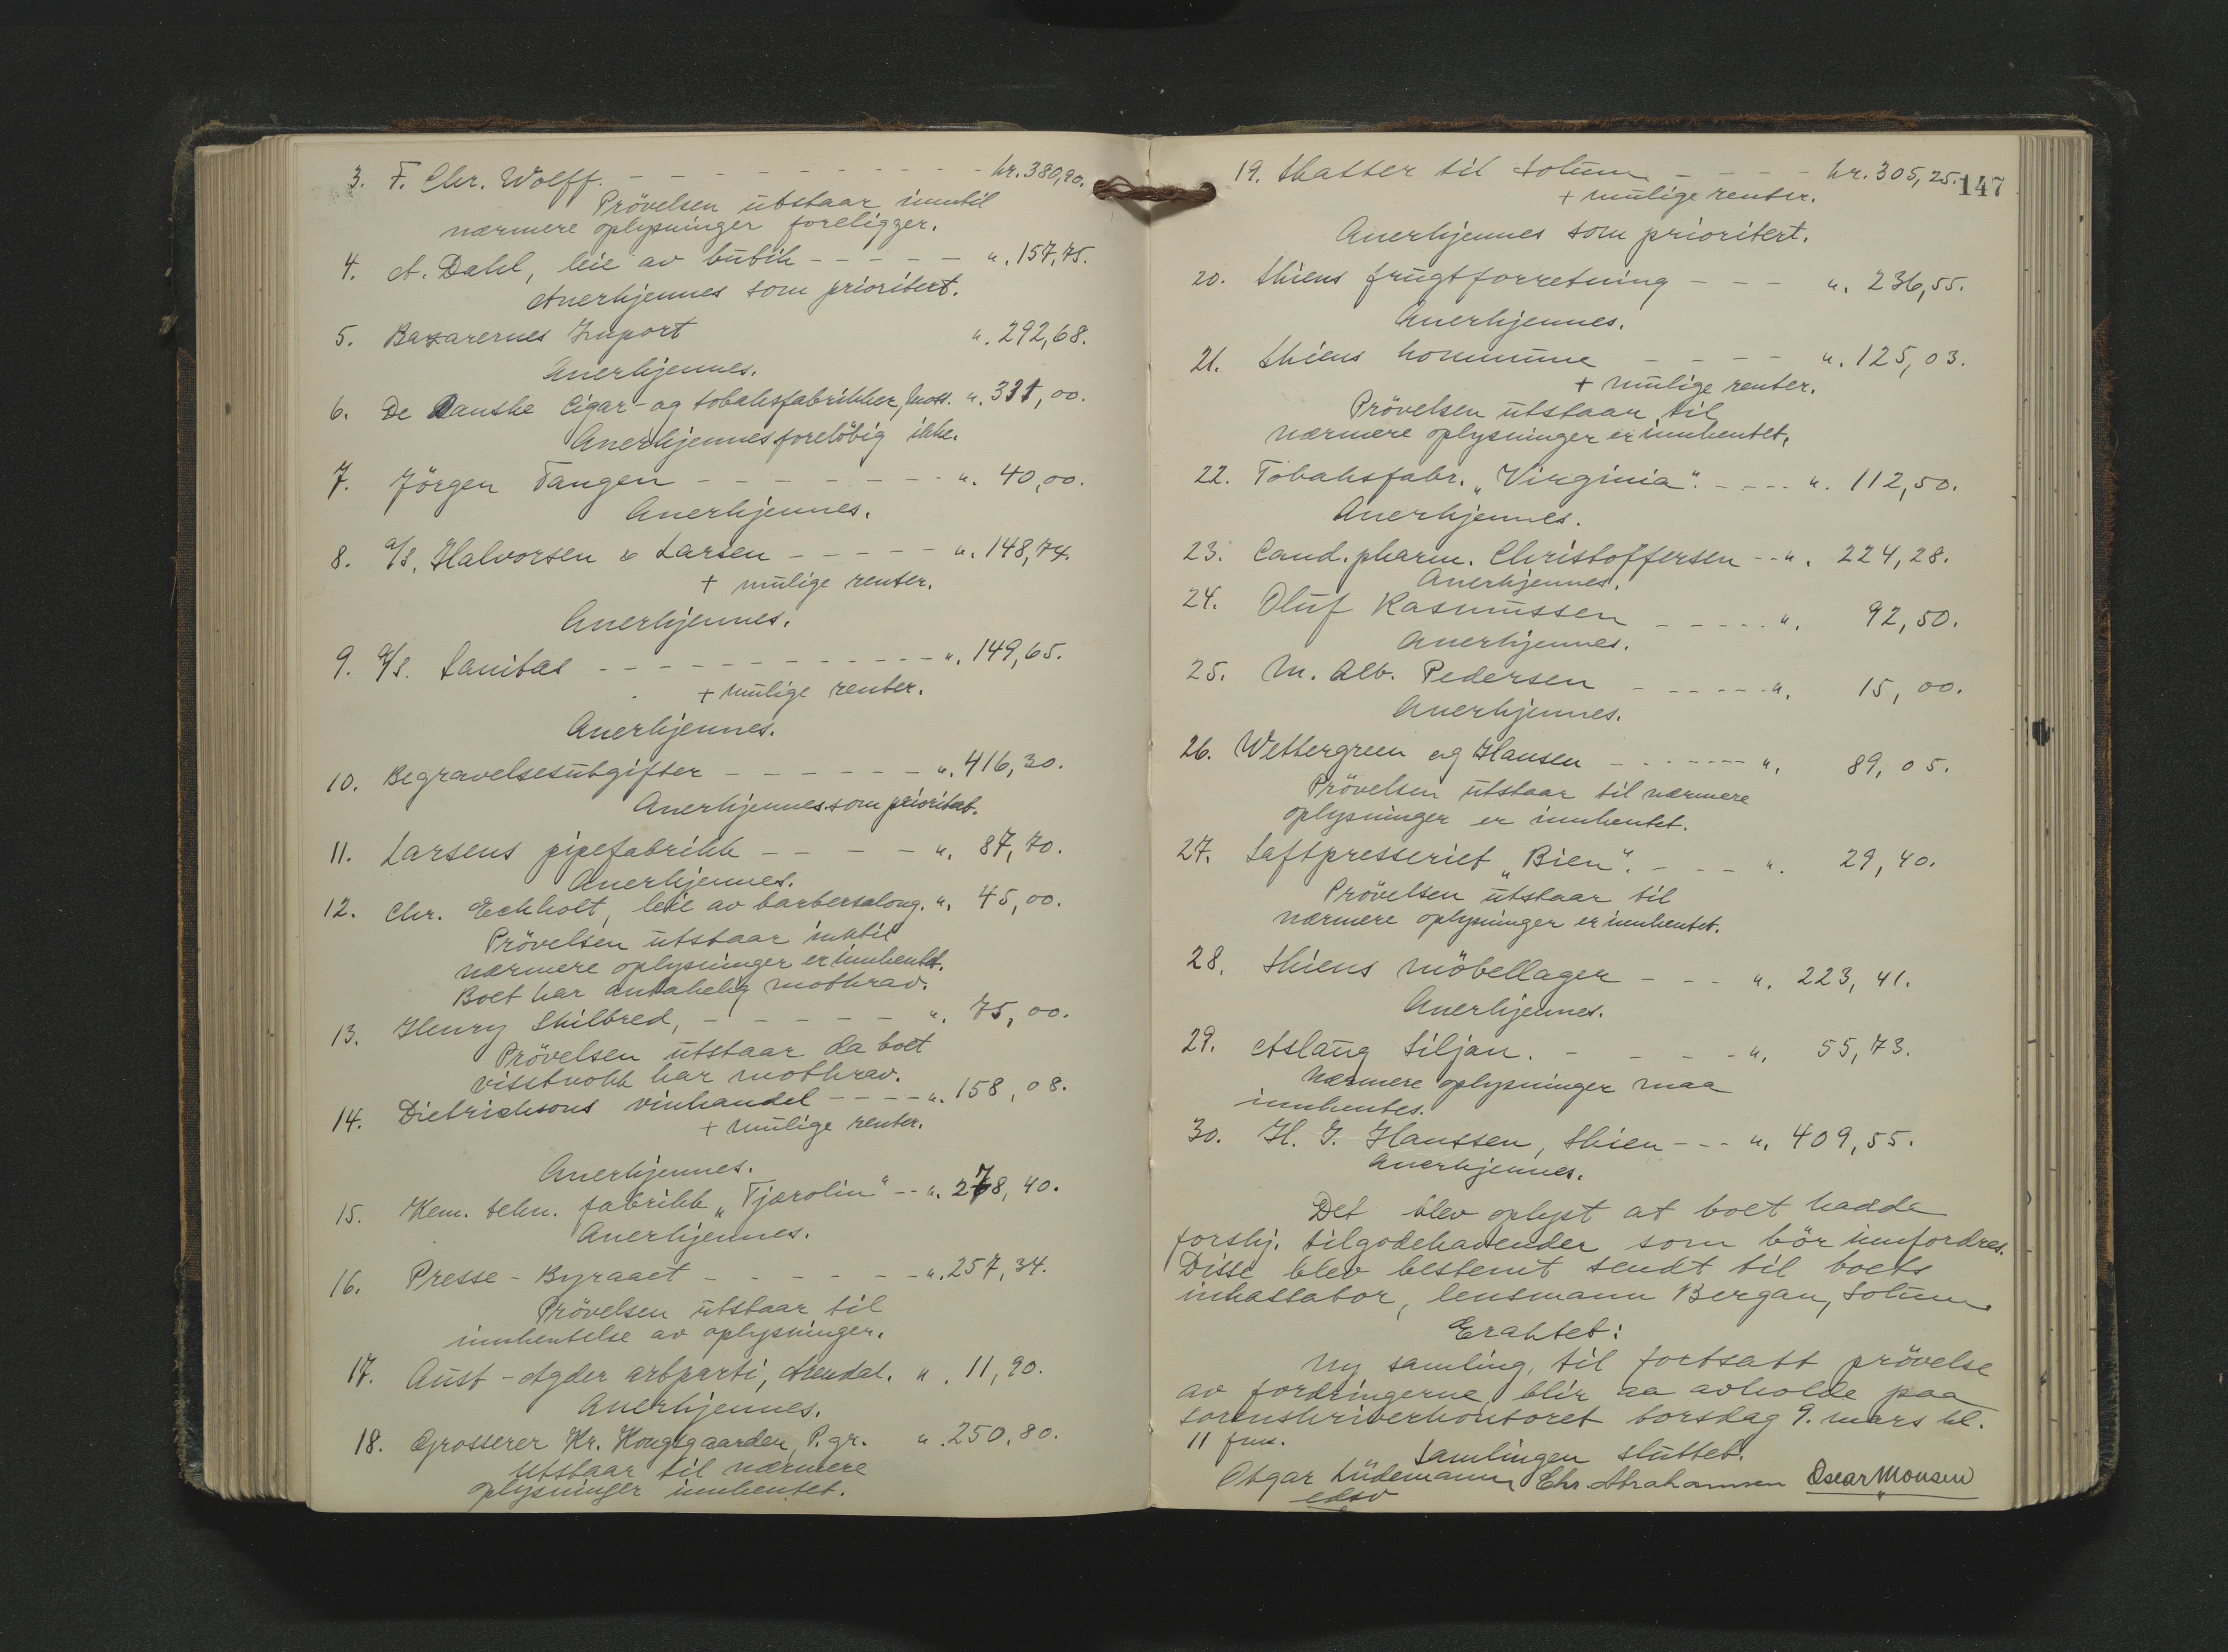 3. F. Chr. Wolff. - - - - - - - - - kr. 380,90.
Prövelsen utstaar inntil
nærmere oplysninger foreligger.
4. A. Dahl, leie av butik - - - - - " . 157,75.
Anerkjennes som prioritert.
5. Bazarernes Import " . 292,68.
Anerkjennes.
6. De Danske Cigar- og tobaksfabrikker, Moss. " . 331,00.
Anerkjennes foreløbig ikke.
7. Jörgen Tangen - - - - - - - " . 40,00.
Anerkjennes.
8. A/S. Halvorsen & Larsen - - - - - " . 148,74.
+ mulige renter.
Anerkjennes.
9. A/S. Sanitas - - - - - - - - - - - " . 149,65.
+ mulige renter.
Anerkjennes.
10. Begravelsesutgifter - - - - - - " . 416,30.
Anerkjennes som prioritert.
11. Larsens pipefabrikk - - - - " . 87,70.
Anerkjennes.
12. Chr. Eckholt, leie av barbersalong. " . 45,00.
Prövelsen utstaar inntil
nærmere oplysninger er innhentet.
Boet har antakelig motkrav.
13. Henry Skilbred, - - - - - " . 75,00.
Prövelsen utstaar da boet
visstnokk har motkrav.
14. Dietrichsons vinhandel - - - - " . 158,08.
+ mulige renter.
Anerkjennes.
15. Kem. tekn. fabrikk „Tjærolin" - - " . 278,40.
Anerkjennes.
16. Presse-Byraaet - - - - - - " . 257,34.
Prövelsen utstaar til
innhentelse av oplysninger.
17. Aust-Agder arbparti, Arendal. " . 11,90.
Anerkjennes.
18. Grosserer Kr. Kongsgaarden, P.gr. " . 250,80.
Utstaar til nærmere
oplysninger innhentet.
147
19. Skatter til Solum - - - - kr. 305,25.
+ mulige renter.
Anerkjennes som prioritert.
20. Skiens frugtforretning - - - " . 236,55.
Anerkjennes.
21. Skiens kommune - - - - " . 125,03.
+ mulige renter.
Prövelsen utstaar til
nærmere oplysninger er innhentet.
22. Tobaksfabr. „Virginia". - - - - " . 112,50.
Anerkjennes.
23. Cand. pharm. Christoffersen - - " . 224,28.
Anerkjennes.
24. Oluf Rasmussen - - - - - " . 92,50.
Anerkjennes.
25. M. Alb. Pedersen - - - - - " . 15,00.
Anerkjennes.
26. Wettergreen og Hansen - - - - - - " . 89,05.
Prövelsen utstaar til nærmere
oplysninger er innhentet.
27. Saftpresseriet „Bien". - - - " . 29,40.
Prövelsen utstaar til
nærmere oplysninger er innhentet.
28. Skiens möbellager - - - " . 223,41.
Anerkjennes.
29. Aslaug Siljan. - - - - - " . 55,73.
Nærmere oplysninger maa
innhentes.
30. H. J. Hanssen, Skien - - - " . 409,55.
Anerkjennes.
Det blev oplyst at boet hadde
forskj. tilgodehavender som bör innfordres.
Disse blev bestemt sendt til boets
inkassator, lensmann Bergan, Solum.
Eraktet:
Ny samling, til fortsatt prövelse
av fordringerne, blir aa avholde paa
sorenskriverkontoret torsdag 9. mars kl.
11 fm.
Samlingen sluttet.
Otgar Lüdemann Chr. Abrahamsen Oscar Monsen
edsv